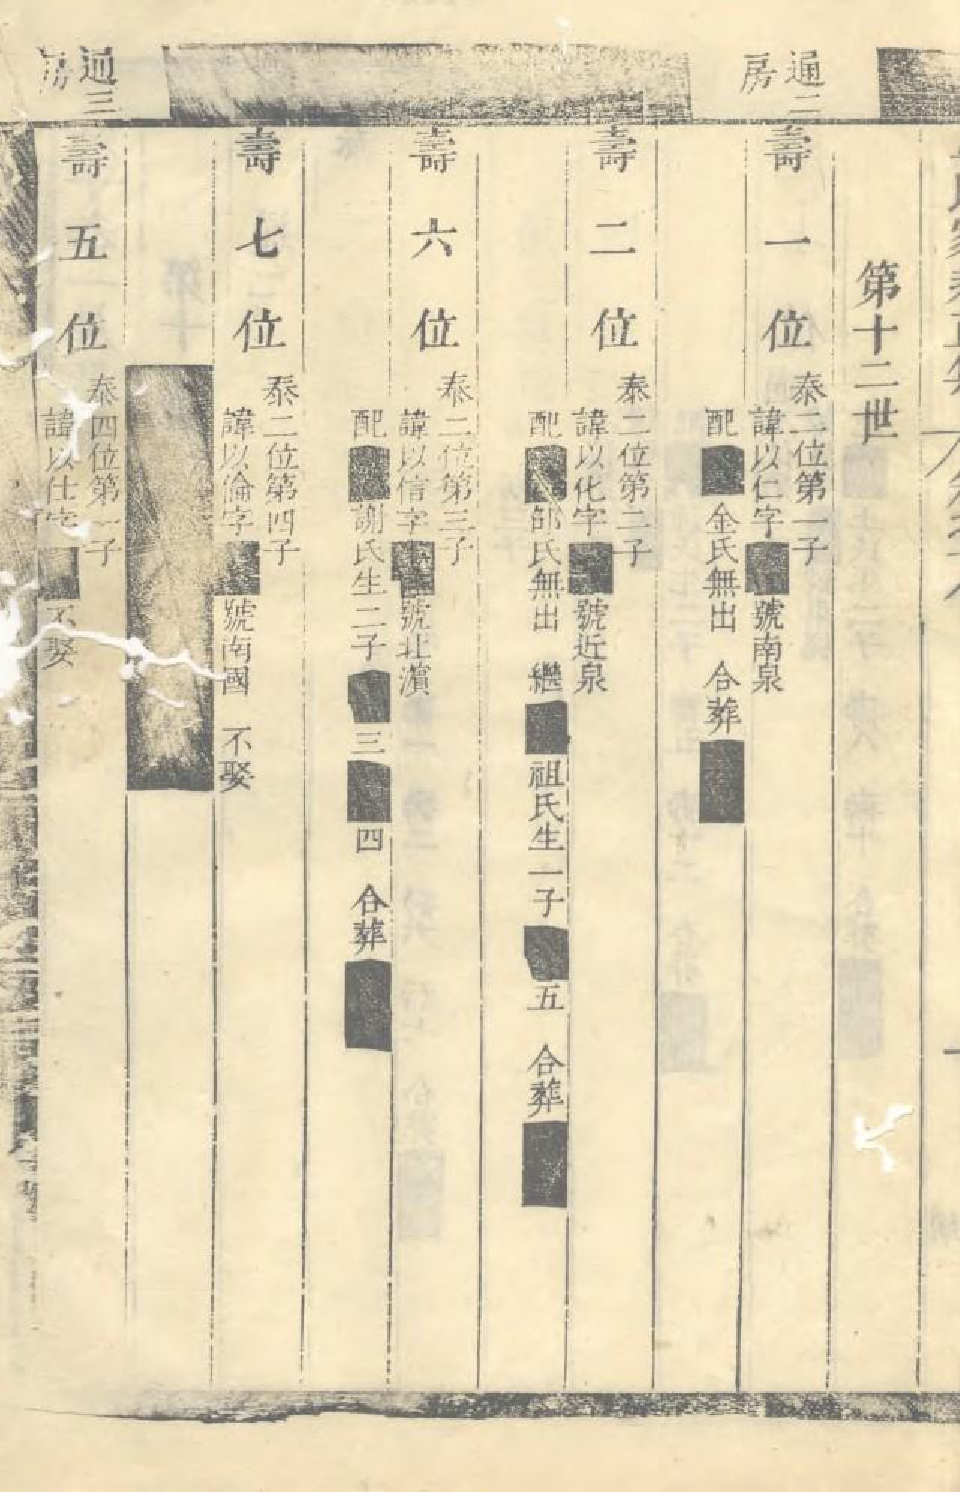 通二房
第十二世
壽一位
泰二位第一子
諱以仁字■號南泉
配■金氏無出 合葬■
壽二位
泰二位第二子
諱以化字■號近泉
配■邰氏無出 繼■祖氏生一子■五 合葬■
壽六位
泰二位第三子
諱以信字■號北濱
配■謝氏生二子■三■四 合葬■
壽七位
泰二位第四子
諱以倫字■號南國 不娶
通三房
壽五位
泰四位第一子
諱以仕字■不娶